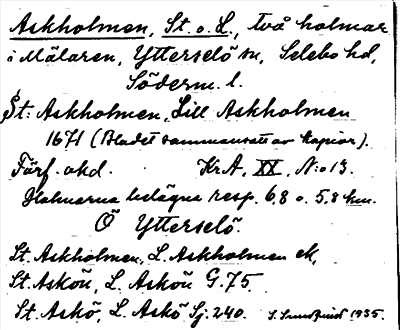 Askholmen, St. o. L., två holmar
i Mälaren, Ytterselö sn, Selebo hd,
Söderm. l.
St: Askholmen, Lill Askholmen
1671 (Bladet sammansatt av kopior).
Förf. okd. KrA, XX, N:o 13.
Holmarna belägna resp. 6,8 o. 5,8 km.
Ö Ytterselö.
St. Askholmen, L. Askholmen ek,
St. Askön, L. Askön G.75.
St. Askö, L. Askö Sj. 240. S. Sundquist 1935.